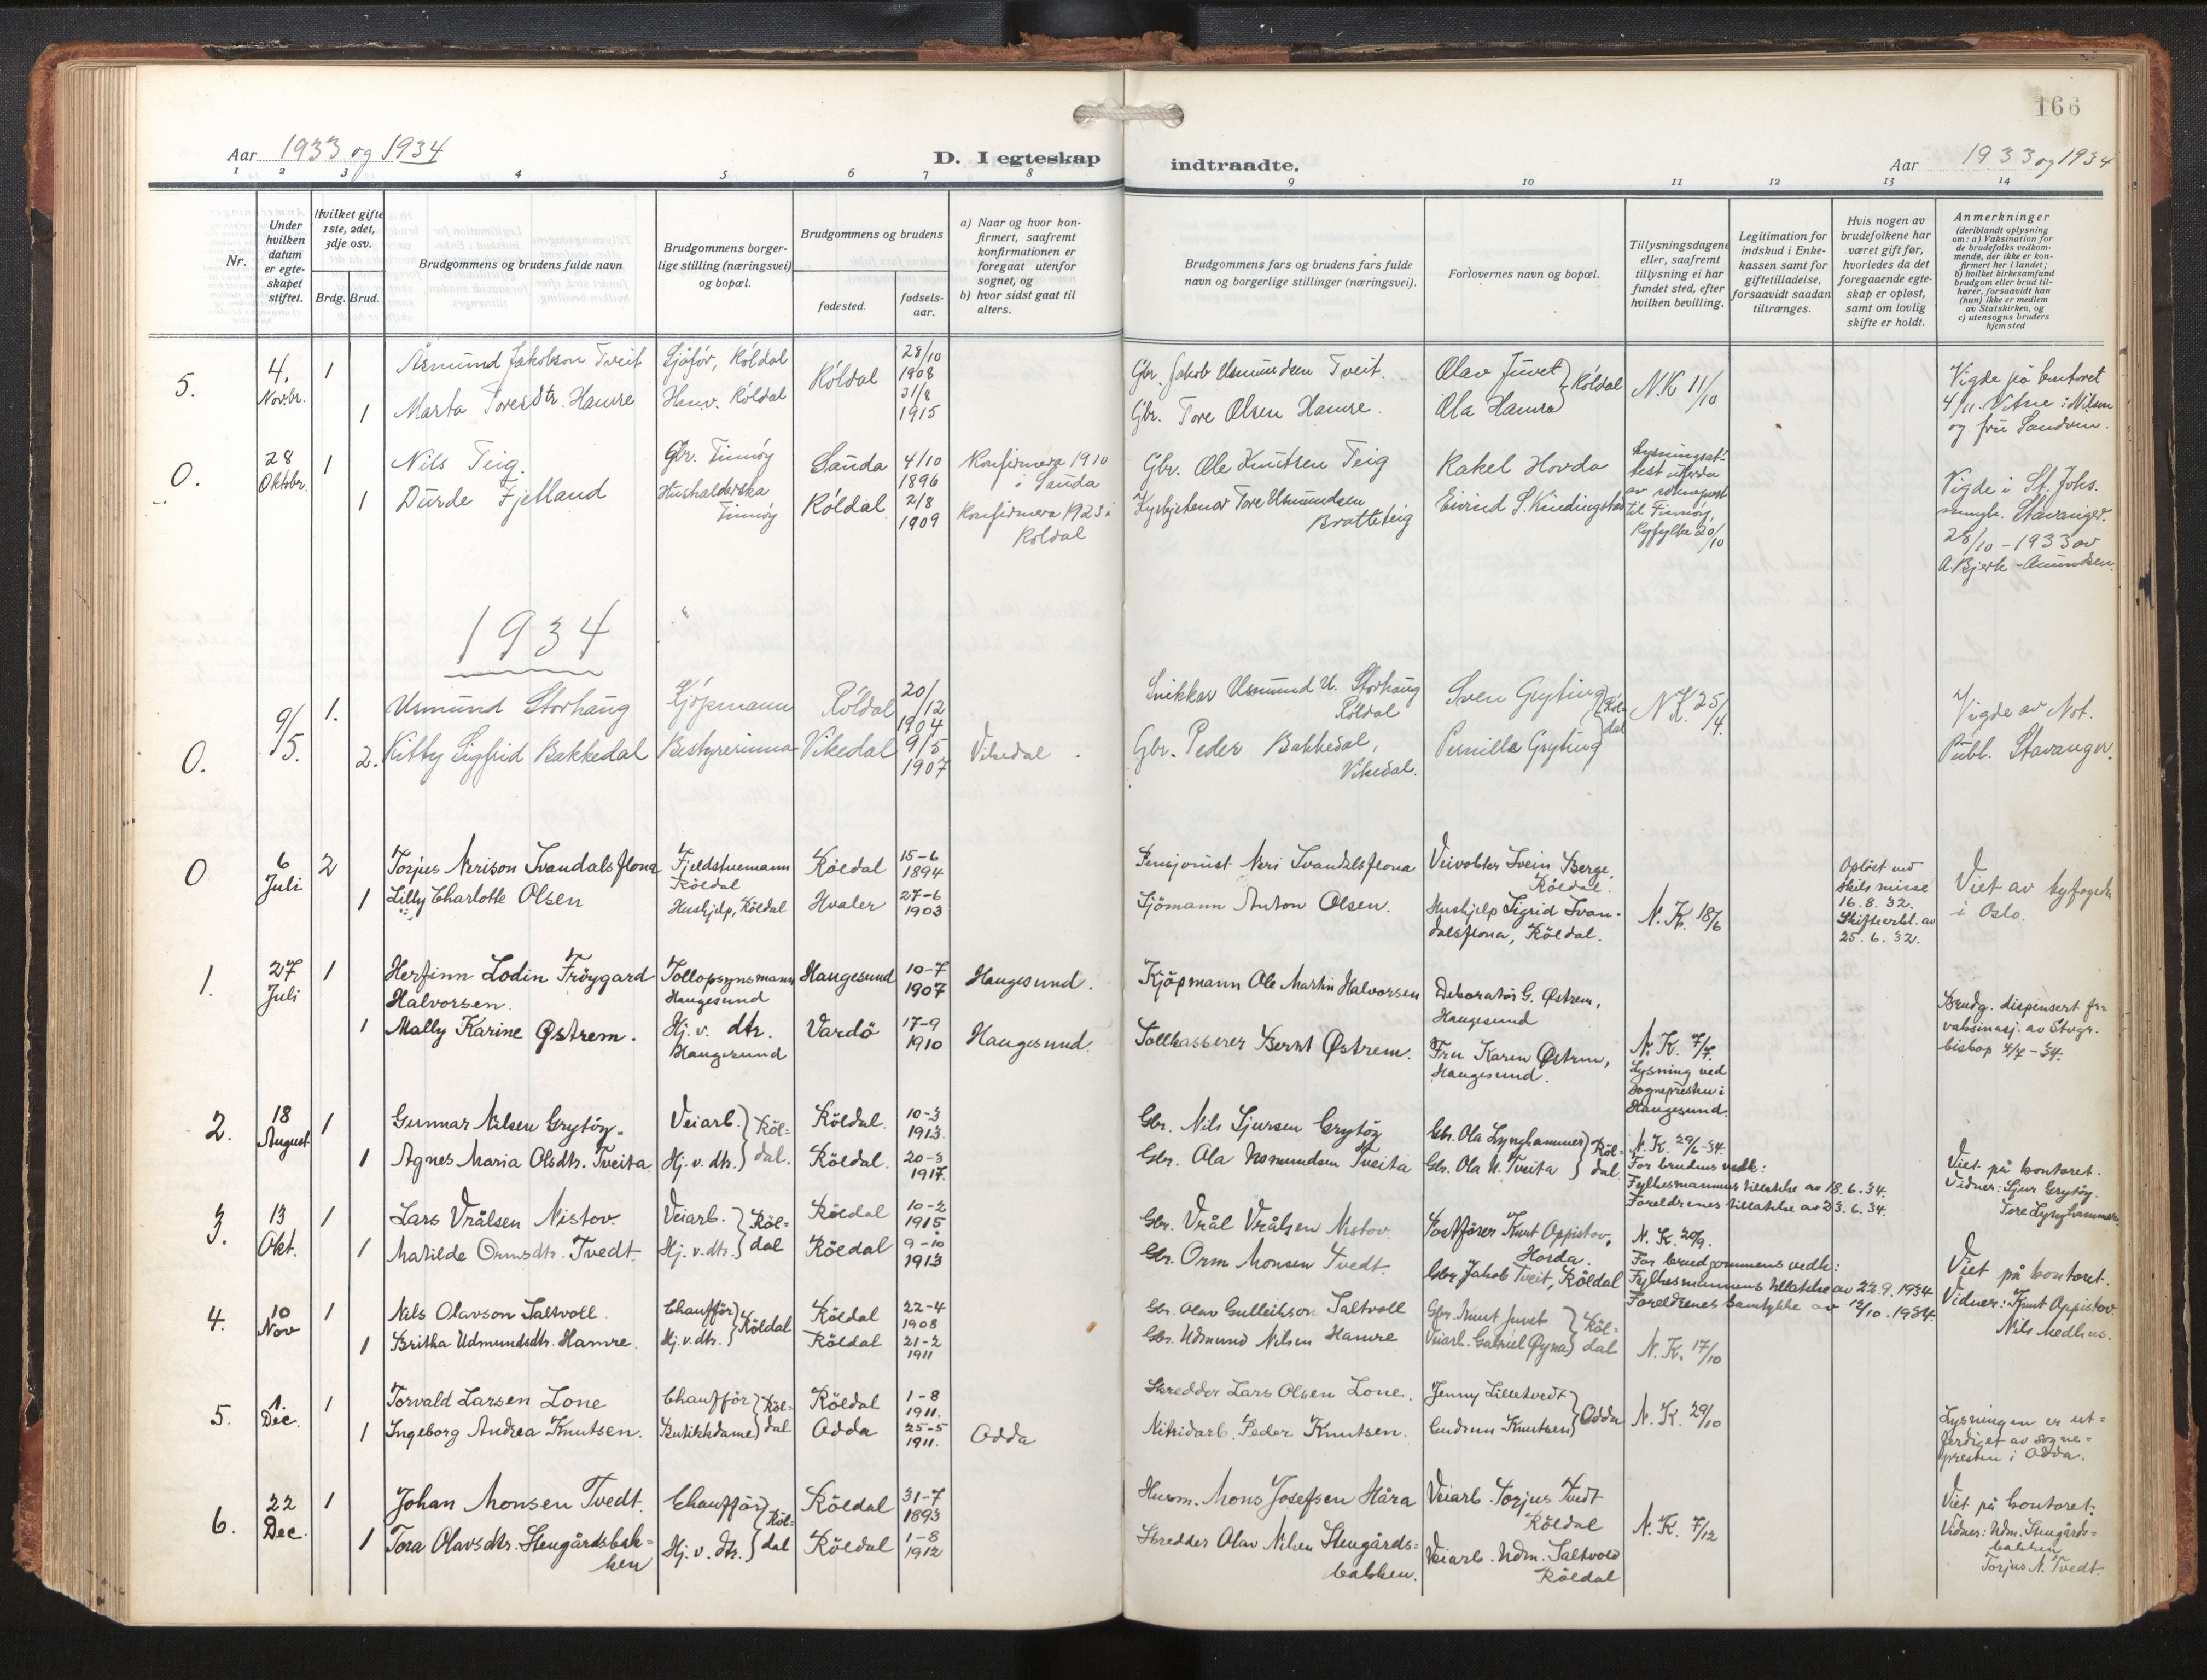 166
Aar 1933 og 1934
D. I egteskap indtraadte.
Aar 1933 og 1934
1 2 3 4 5 6 7 8 9 10 11 12 13 14
Nr.
Under
hvilken
datum
er egte-
skapet
stiftet.
Hvilket gifte
1ste, 2det,
3dje osv.
Brdg. Brud.
Brudgommens og brudens fulde navn
Brudgommens borger-
lige stilling (næringsvei)
og bopæl.
Brudgommens og brudens
fødested.
fødsels-
aar.
a) Naar og hvor kon-
firmert, saafremt
konfirmationen er
foregaat utenfor
sognet, og
b) hvor sidst gaat til
alters.
Brudgommens fars og brudens fars fulde
navn og borgerlige stillinger (næringsvei).
Forlovernes navn og bopæl.
Tillysningsdagene
eller, saafremt
tillysning ei har
fundet sted, efter
hvilken bevilling.
Legitimation for
indskud i Enke-
kassen samt for
giftetilladelse,
forsaavidt saadan
tiltrænges.
Hvis nogen av
brudefolkene har
været gift før,
hvorledes da det
foregaaende egte-
skap er opløst,
samt om lovlig
skifte er holdt.
Anmerkninger
(deriblandt oplysning
om: a) Vaksination for
de brudefolks vedkom-
mende, der ikke er kon-
firmert her i landet;
b) hvilket kirkesamfund
brudgom eller brud til-
hører, forsaavidt han
(hun) ikke er medlem
av Statskirken, og
c) utensogns bruders
hjemsted
5. 4. Novbr. 1 Åsmund Jakobson Tveit Sjåfør, Röldal Röldal 28/10 1908 Gbr. Jakob Asmundsen Tveit. Olav Juvet Röldal N.K 11/10
1 Marta Toresdtr. Hamre Heimv. Röldal 31/8 1915 Gbr. Tore Olsen Hamre. Ola Hamre
Vigde på kontoret
4/11. Vitne: Nilsen
og frü Sandvin.
0. 28 Oktobr. 1 Nils Teig. Gbr. Finnöy Sauda 4/10 1896 Konfirmera 1910
i Sauda Gbr. Ole Knutsen Teig Rakel Hovda
1 Durde Fjetland Hushalderska
Finnöy Röldal 2/8 1909 Konfirmera 1923 i
Röldal Tore Asmundsen
Bratteteig Eivind S. Kindingstad
Lysningsat-
test utferda
av sokneprest
til Finnöy,
Ryfylke 20/10
Vigde i St. Johs.
menigh. Stavanger.
28/10 - 1933 av
A. Bjerk-Amundsen.
1934
0. 9/5. 1. Asmund Storhaug Kjöpmann Röldal 20/12 1904 Snikkar Asmund A. Storhaug
Röldal Sven Grytting Röl-
dal N.K. 25/4.
2. Kitty Sigfrid Bakkedal Bestyrerinna Vikedal 9/5 1907 Vikedal. Gbr. Peder Bakkedal,
Vikedal. Pernilla Grytting
Vigde av Not.
Publ. Stavanger.
0 6 Juli 2 Torjus Nerison Svandalsflona Fjeldstuemann
Röldal Röldal 15-6 1894 Pensjonist Neri Svandalsflona Veivokter Svein Berge,
Röldal.
1 Lilly Charlotte Olsen Hushjelp, Röldal Hvaler 27-6 1903 Sjömann Anton Olsen. Hushjelp Sigrid Svan-
dalsflona, Röldal. N.K. 18/6
Oplöst ved
skilsmisse
16.8.32.
Skifteerkl. av
25.6.32.
Viet av byfogden
i Oslo.
1. 27 Juli 1 Herfinn Lodin Fröygard
Halvorsen. Tollopsynsmann
Haugesund Haugesund 10-7 1907 Haugesund. Kjöpmann Ole Martin Halvorsen Dekoratör G. Østrem,
Haugesund
1 Mally Karine Østrem. Hj.v. dtr.
Haugesund Vardö 17-9 1910 Haugesund. Tollkasserer Bernt Østrem. Fru Karen Østrem,
Haugesund.
N.K. 7/7.
Lysning ved
sognepresten i
Haugesund.
Brudg. dispensert fra
vaksinasj. av Stvgr.
biskop 4/7-34.
2. 18 August 1 Gunnar Nilsen Grytöy. Veiarb. Röl-
dal. Röldal. 10-3 1913. Gbr. Nils Sjursen Grytöy Gbr. Ola Lynghammer Röl-
dal
1 Agnes Maria Olsdtr. Tveita Hj.v. dtr. Röldal. 20-3 1917. Gbr. Ola Asmundsen Tveita Gbr. Ola A. Tveita
N.K. 29/6-34.
For brudens vedk:
Fylkesmannens tillatelse av 18.6.34.
Foreldrenes tillatelse av 23.6.34.
Viet på kontoret.
Vidner: Sjur Grytöy.
Tore Lynghammer
3. 13 Okt. 1 Lars Vrålsen Nistov. Veiarb. Röl-
dal Röldal 10-2 1915 Gbr. Vrål Vrålsen Nistov. Postförer Knut Oppistov,
Horda.
1 Matilde Ormsdtr. Tvedt. Hj.v. dtr. Röldal 9-10 1913 Gbr. Orm Monsen Tvedt. Gbr. Jakob Tveit, Röldal
N.K. 20/9.
For brudgommens vedk:
Fylkesmannens tillatelse av 22.9.1934.
Foreldrenes samtykke av 12/10.1934.
Viet på kontoret.
Vidner: Knut Oppistov
Nils Medhus.
4. 10 Nov 1 Nils Olavson Saltvoll. Chaufför Röldal Röldal 22-4 1908 Gbr. Olav Gulleikson Saltvoll Gbr. Knut Juvet Röl-
dal
1 Britha Udmundsdtr. Hamre. Hj.v. dtr. Röldal 21-2 1911 Gbr. Udmund Nilsen Hamre Veiarb. Gabriel Øyna N.K. 17/10
5. 1. Dec. 1 Torvald Larsen Lone Chaufför Röl-
dal Röldal 1-8 1911. Skredder Lars Olsen Lone. Jenny Lilletvedt Odda N.K. 29/10
1 Ingeborg Andrea Knutsen. Butikkdame Odda 25-5 1911. Odda Nitridarb. Peder Knutsen. Gudrun Knutsen
Lysningen er ut-
ferdiget av sogne-
presten i Odda.
6. 22 Dec. 1 Johan Monsen Tvedt. Chaufför Röl-
dal Röldal 31-7 1893 Husm. Mons Josefsen Håra Veiarb. Torjus Tvedt
Röldal N.K. 7/12
1 Tora Olavsdtr. Stengårdsbak-
ken Hj.v. dtr. Röldal 1-8 1912 Skredder Olav Nilsen Stengårds-
bakken. Veiarb. Udm. Saltvold
Röldal
Viet på kontoret.
Vidner: Udm. Stengårds-
bakken
Torjus N. Tvedt.